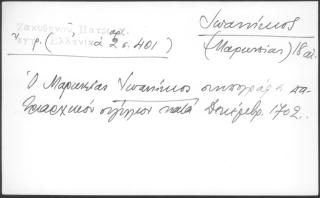 Ζακυθηνού, Πατριαρχ.
ἔγγρ. (Ἑλληνικά 2 σ. 401)
Ἰωαννίκιος
(Μαρωνείας) 18 αἰ.
Ὁ Μαρωνείας Ἰωαννίκιος συνυπογράφει πα-
τριαρχικόν σιγίλλιον κατά Δεκέμβρ. 1702.